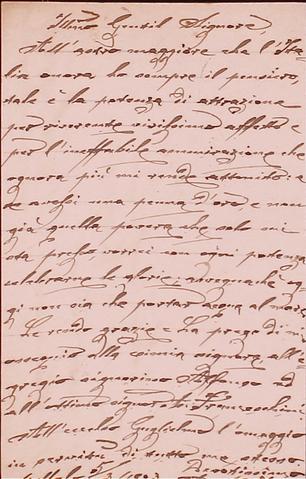 Illmo Gentil Signore,
All'astro maggiore che l'Ita-
lia onora ho sempre il pensiero,
tale è la potenza di attrazione
per riverente vivissimo affetto e
per l'ineffabile ammirazione che
ognora più mi rende attonito: e
se avessi una penna d'oro e non
già quella povera che solo mi
sta presso, vorrei con ogni potenza
celebrarne le glorie: avvegnachè og-
gi non sia che portar acqua al mare.
Le rendo grazie e La prego di
ossequio alla esimia signora, all'e-
gregio signorino ed
all'ottimo signor Franceschini.
All'eccelso Guglielmo l'omaggio
in perpetuo di tutto me stesso